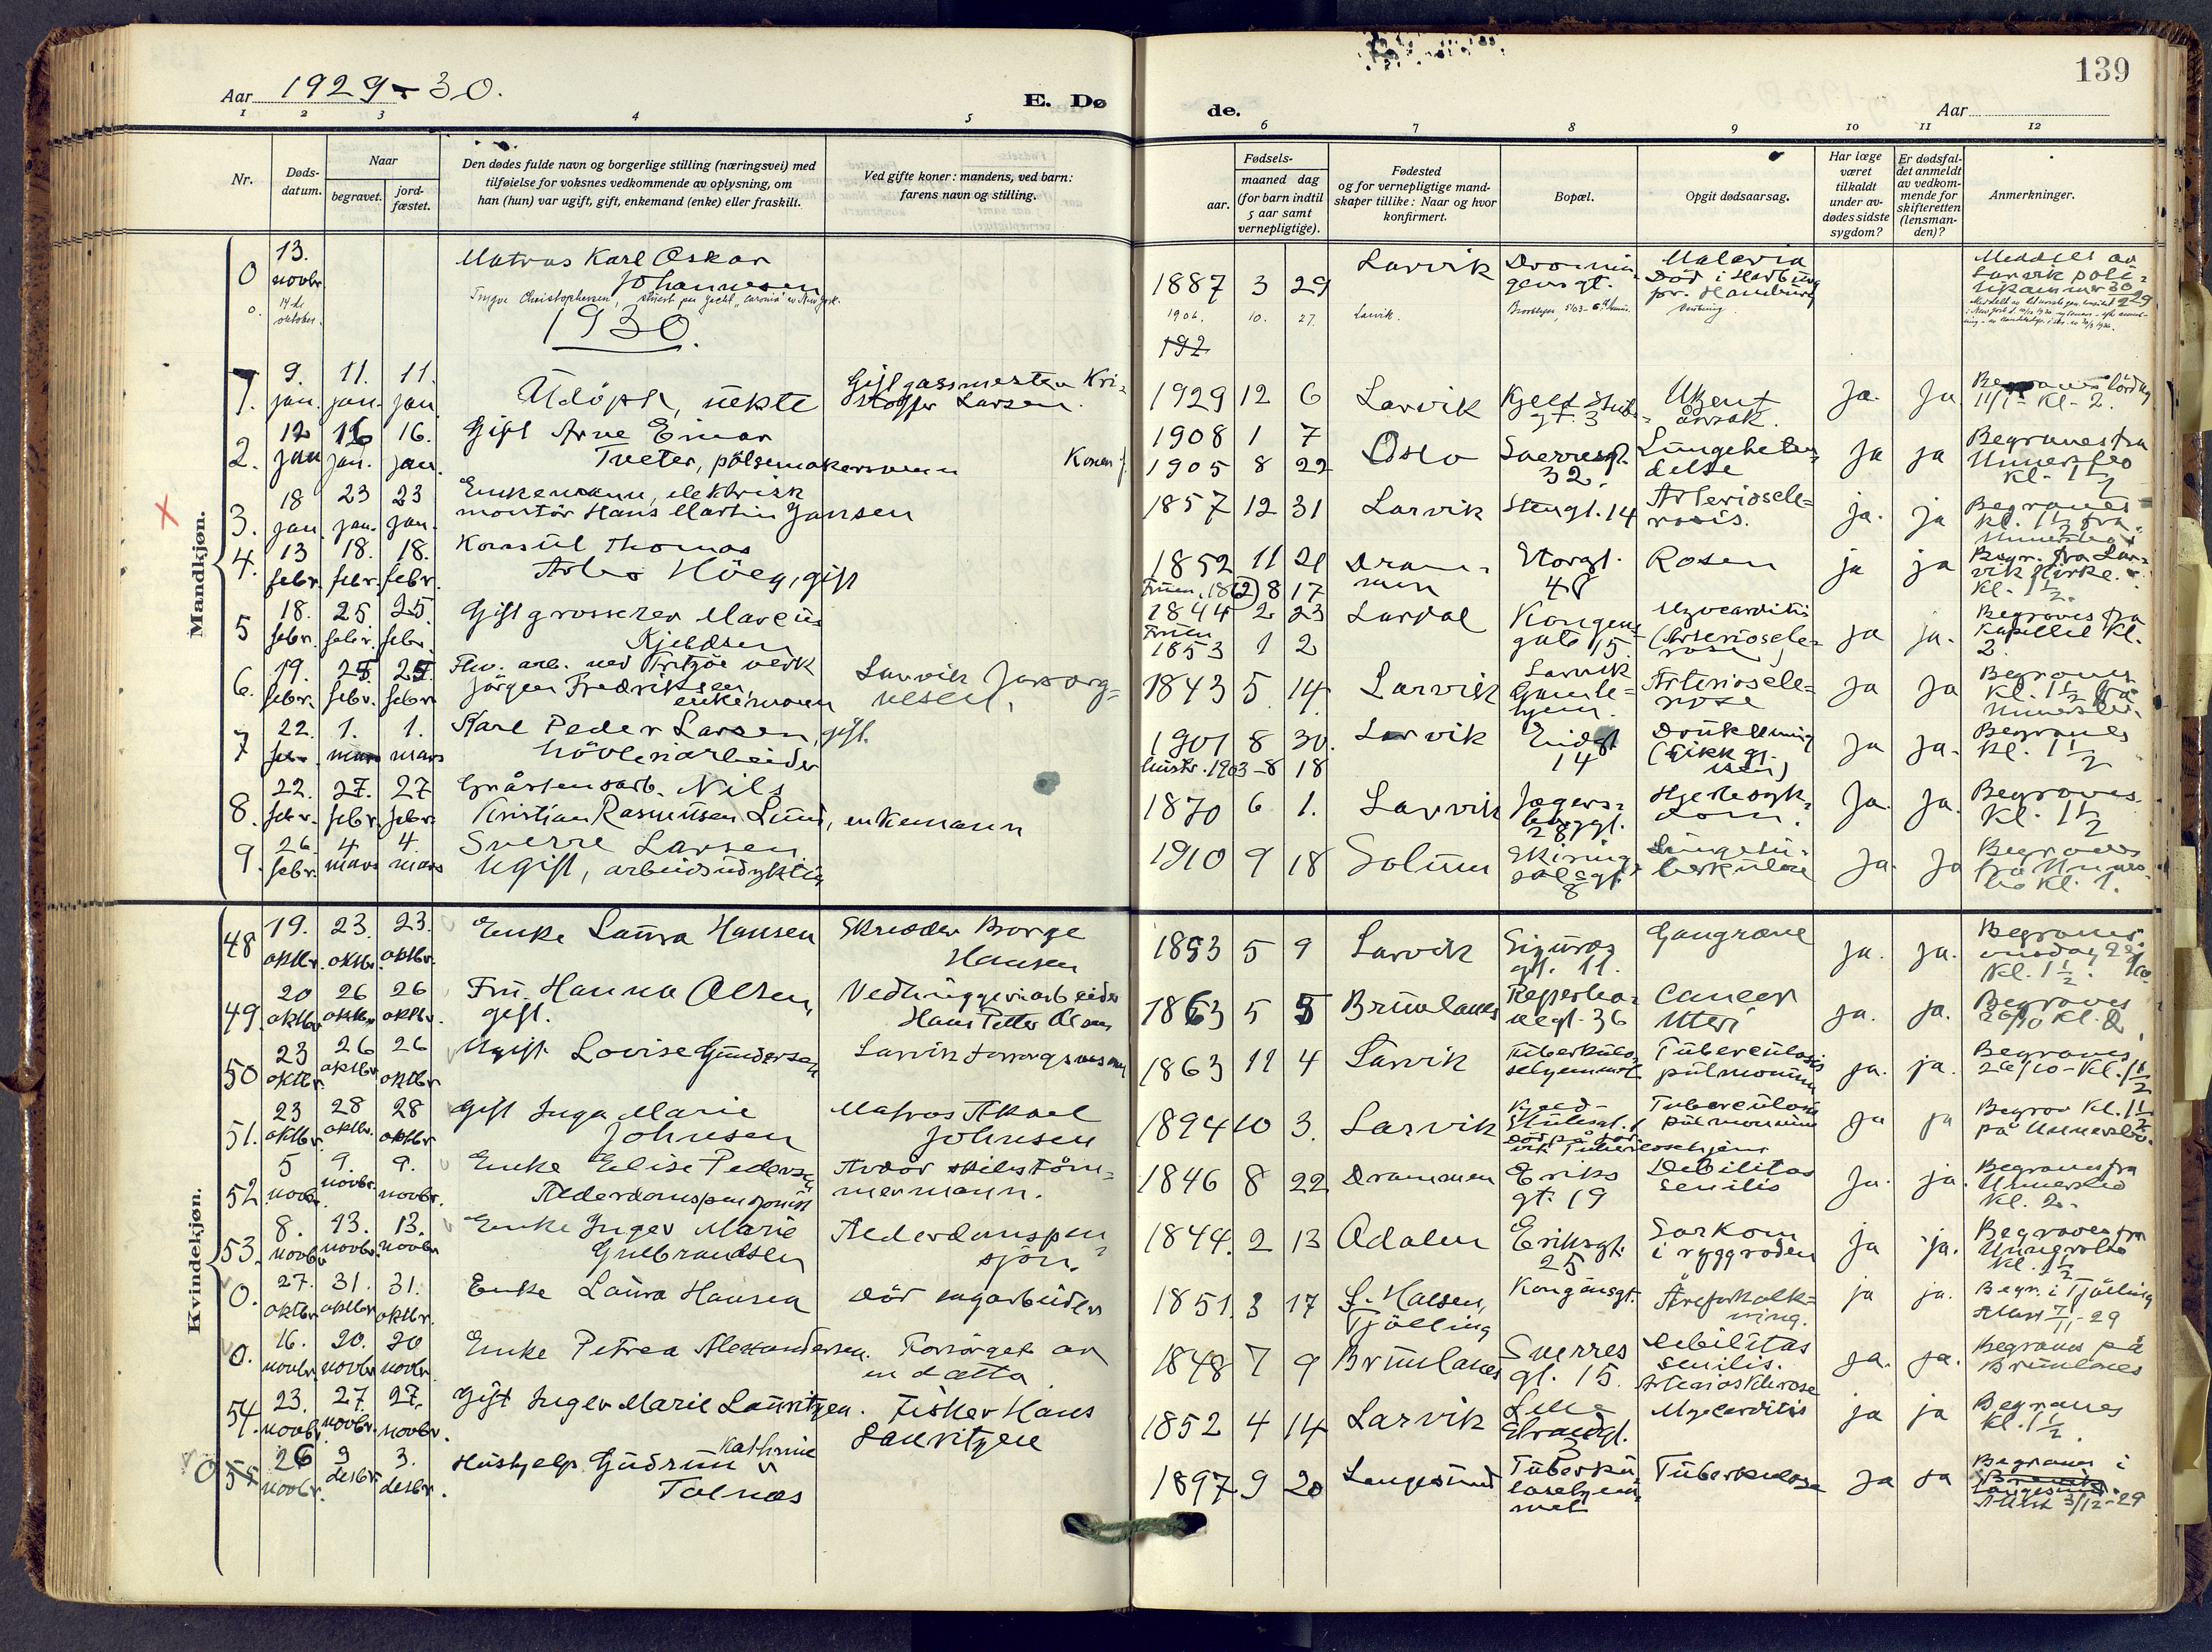 139
Aar 1929-30.
E. Dø
de.
Aar
1 2 3 4 5 6 7 8 9 10 11 12
Nr.
Døds-
datum.
Naar
begravet.
jord-
fæstet.
Den dødes fulde navn og borgerlige stilling (næringsvei) med
tilføielse for voksnes vedkommende av oplysning, om
han (hun) var ugift, gift, enkemand (enke) eller fraskilt.
Ved gifte koner: mandens, ved barn:
farens navn og stilling.
Fødsels-
aar.
maaned dag
(for barn indtil
5 aar samt
vernepligtige).
Fødested
og for vernepligtige mand-
skaper tillike: Naar og hvor
konfirmert.
Bopæl.
Opgit dødsaarsag.
Har læge
været
tilkaldt
under av-
dødes sidste
sygdom?
Er dødsfal-
det anmeldt
av vedkom-
mende for
skifteretten
(lensman-
den)?
Anmerkninger.
Mandkjøn.
0 13. novbr Matros Karl Oskar
Johannesen
1887 3 29 Larvik Dronnin-
gens gt. Malaria
Död i Harburg
pr. Hamburg
Meddelt av
Larvik poli-
0. 14de oktober. Yngve Christophersen,
1906. 10. 27. Larvik.
1930.
192
1. 9. jan. 11. jan. 11. jan Udöpt, uekte
Gift gassmester Kri-
stoffer Larsen.
1929 12 6 Larvik Kjeld Stub-
gt. 3 Ukjent
årsak. Ja. Ja Begraves lördag
11/1 - Kl. 2.
2. 12 jan 16 jan. 16. jan. Gift Arne Einar
Tveter, pölsemakersvenn
Konen f.
1908 1 7
1905 8 22 Oslo Sverresgt.
32. Lungebeten-
delse ja ja Begraves fra
Undersbo
Kl. 1 1/2
3. 18 jan 23 jan. 23 jan. Enkemann, elektrisk
montör Hans Martin Jansen
1857 12 31 Larvik Stengt. 14 Arterioscle-
rosis. ja. ja Begraves
Kl. 1 1/2 fra
4. 13 febr. 18. febr. 18. febr. Konsul Thomas
Arbo Höeg, gift
1852 11 21 Dram-
men Storgt.
48 Rosen ja ja Begr. fra Lar-
vik Kirke.
Kl. 1 1/2.
Fruen. 1862 8 17
5 18. febr. 25. febr. 25. febr. Gift grosserer Marcus
Kjeldsen
1844 2 23 Lardal Kongens-
gate 15. Myocarditis
(Arteriosclerose) ja ja. Begraves fra
Kapellet Kl.
2.
Fruen
1853 1 2
6. 19. febr. 25. febr. 25. febr. Fhv. arb. ved Fritzöe verk
Jörgen Fredriksen,
enkemann
Larvik Forsorg-
vesen,
1843 5. 14. Larvik Larvik
Gamle-
hjem. Arterioscle-
rose ja ja Begraves
Kl. 1 1/2 fra
7 22. febr. 1. mars 1. mars Karl Peder Larsen, gift.
hövleriarbeider
1901 8 30. Larvik Eidsgt
14 Drukkning ja ja. Begraves
Kl. 1 1/2
hustr. 1903-8 18
8. 22. febr. 27. febr. 27 febr. Gråstensarb. Nils
Kristian Rasmussen Lund, enkemann
1870 6 1. Larvik Jegers-
borggt.
28 Hjertesyk-
dom. Ja. Ja. Begraves
Kl. 1 1/2
9. 26. febr. 4 mars 4. mars Sverre Larsen
Ugift, arbeidsudyktig
1910 9 18 Solum Skirings-
salsgt.
8 Lungetu-
berkulose Ja. Ja Begraves
fra Unners-
bo Kl. 1.
Kvindekjøn.
48 19. oktbr. 23. oktbr. 23. oktbr. Enke Laura Hansen
Skredder Borge
Hansen
1853 5 9 Larvik Sigurds
gt. 11. Gangræne ja. ja. Begraves
onsdag 23/10
Kl. 1 1/2.
49. 20 oktbr. 26 oktbr. 26 oktbr. Fru. Hanna Olsen
gift.
Vedhuggeriarbeider
Hans Petter Olsen
1863 5 5 Brunlanes Reperba-
negt. 36 Cancer
Uteri ja. ja. Begraves
26/10 Kl. 2
50 23 oktbr. 26 oktbr. 26 oktbr Ugift Lovise Gundersen
Larvik forsorgsvesen
1863 11 4 Larvik Tuberkulo-
sehjemmet Tuberculosis
pulmonum ja. ja. Begraves
26/10 - Kl. 1 1/2
51. 23 oktbr. 28 oktbr. 28 oktbr Gift Inga Marie
Johnsen
Matros Aksel
Johnsen
1894 10 3. Larvik Kjeld-
Stubsgt. 1
död på Lar-
vik Tuberculosehjem Tuberculosis
pulmonum ja ja Begrav Kl. 1 1/2
på Undersbo.
52. 5 novbr. 9. novbr. 9. novbr. Enke Elise Pedersen
Alderdomspensjonist
Avdör skibstöm-
mermann.
1846 8 22 Drammen Eriks
gt. 19 Debilitas
senilis Ja. ja. Begraves fra
Undersbo
Kl. 2.
53. 8. novbr. 13. novbr. 13. novbr Enke Inger Marie
Gulbrandsen
Alderdomspen-
sjon.
1844. 2 13 Ådalen Eriksgt.
25 Sarkom
i ryggraden ja ja. Begraves fra
Kl. 1 1/2
0. 27. oktbr. 31. oktbr 31. oktbr. Enke Laura Hansen
död sagarbeider
1851. 3 17 L. Halsen,
Tjölling Kongensgt. Åreforkalk-
ning. ja ja. Begr. i Tjölling
Attest 7/11-29
0. 16. novbr. 20. novbr 20 novbr. Enke Petrea Alexandersen.
Forsörget av
en datta.
1848 7 9 Brunlanes Sverres
gt. 15. Debilitas
senilis.
Arteriosklerose ja. ja. Begraves på
Brunlanes
54. 23. novbr. 27. novbr. 27. novbr. Gift Inger Marie Lauritzen.
Fisker Hans
Lauritzen
1852 4 14 Larvik Lille
Strandgt.
3 Myocarditis ja ja Begraves
Kl. 1 1/2.
0 55 26 novbr. 3 desbr. 3. desbr. Hushjelp Gudrun Kathrine
Tolnæs
1897 9 20 Langesund Tuberku-
losehjem-
met Tuberkulose Ja ja Begraves i
Brevik
Langesund.
Attest 3/12-29